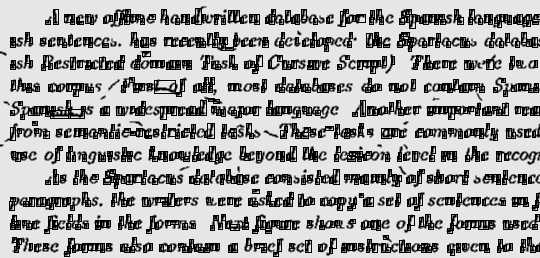 A new offline handwritten database for the Spanish language
ish sentences, has recently been developed: the Spartacus databas
ish Restricted domain Task of Cursive Script). There were two
this corpus. First of all, most databases do not contain Spani
Spanish is a widespread major language. Another important rea
from semantic-restricted tasks. These tasks are commonly used
use of linguistic knowledge beyond the lexicon level in the recogn
As the Spartacus database consisted mainly of short sentence
paragraphs, the writers were asked to copy a set of sentences in f
line fields in the forms. Next figure shows one of the forms used
These forms also contain a brief set of instructions given to the